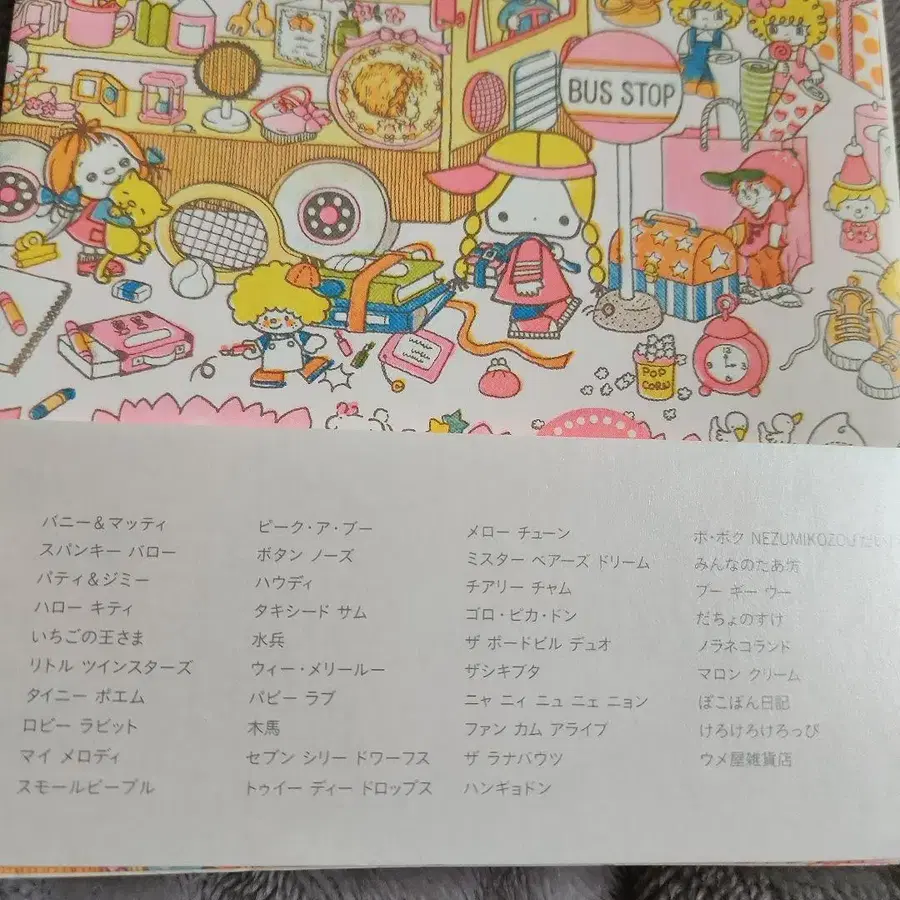 BUS STOP
POP
CORN
バニー&マッティ
スパンキー バロー
パティ&ジミー
ハロー キティ
いちごの王さま
リトル ツインスターズ
タイニー ポエム
ロビー ラビット
マイ メロディ
スモールピープル
ピーク・ア・ブー
ボタン ノーズ
ハウディ
タキシード サム
水兵
ウィー・メリールー
パピー ラブ
木馬
セブン シリー ドワーフス
トゥイー ディー ドロップス
メロー チューン
ミスター ベアーズ ドリーム
チアリー チャム
ゴロ・ピカ・ドン
ザ ボードビル デュオ
ザシキブタ
ニャ ニィ ニュ ニェ ニョン
ファン カム アライブ
ザ ラナバウツ
ハンギョドン
ボ・ボク NEZUMIKOZOU
みんなのたあ坊
ブー ギー ウー
だちょのすけ
ノラネコランド
マロン クリーム
ぽこぽん日記
けろけろけろっぴ
ウメ屋雑貨店